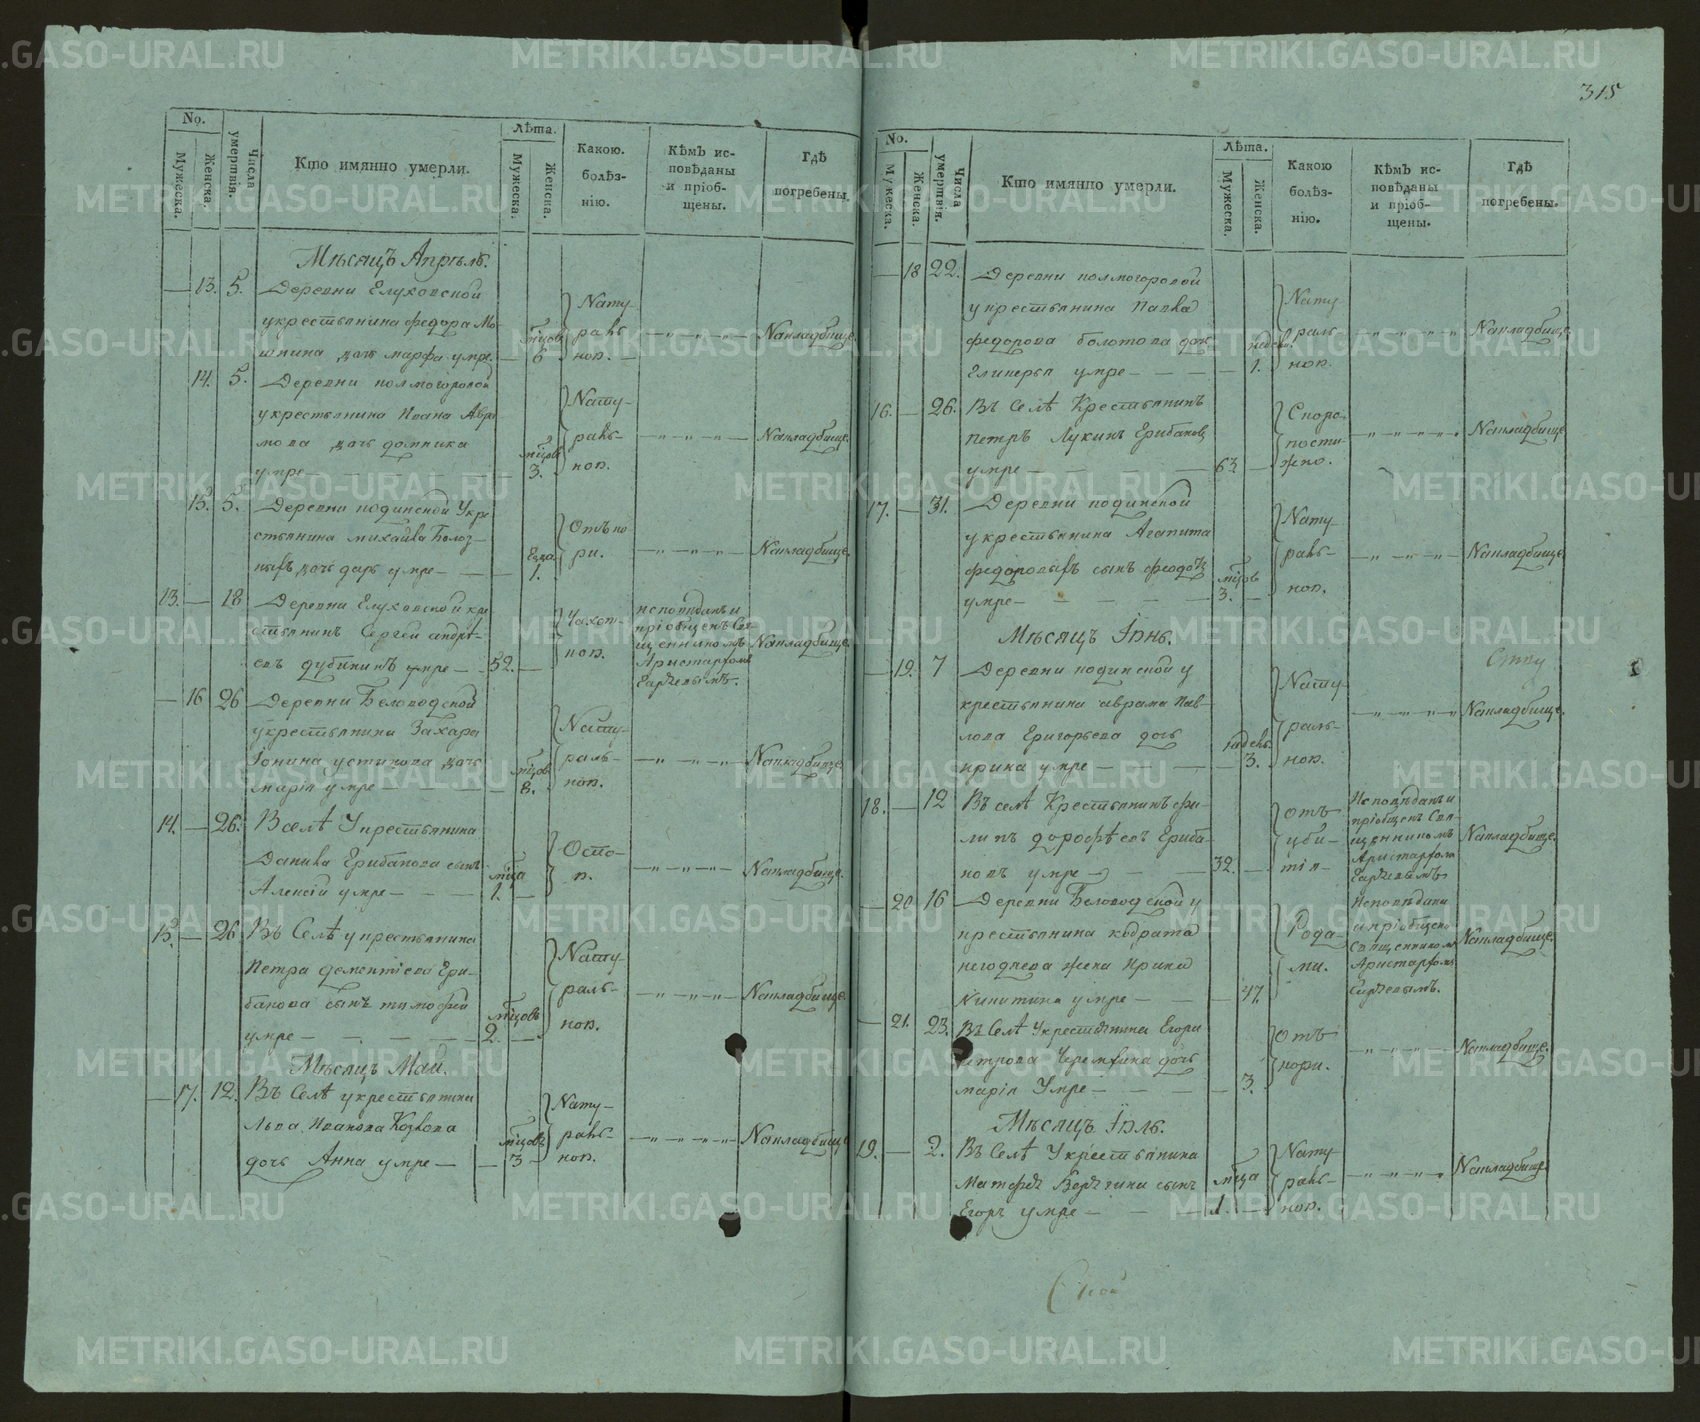 315
No.
Мужеска.
Женска.
Числа умертвія.
Кто имянно умерли.
Лѣта.
Мужеска.
Женска.
Какою.
болѣз-
нію.
КѣмЪ ис-
повѣданы
и пріоб-
щены.
Гдѣ
погребены.
Мѣсяцъ Апрѣль.
13. 5. Деревни Елуховской
укрестьянина федора Мо
шнина дочь марфа умре — мцов 6
Нату-
раль-
ной.
Накладбище.
14. 5. Деревни полмогоровой
укрестьянина Ивана Авра
мова дочь домника
умре — мцов 3.
Нату-
раль-
ной.
Накладбище.
15. 5. Деревни подинской Укре
стьянина михайла
дочь дарья умре — 1.
Отъ ко
ри.
Накладбище
13. 18 Деревни Елуховской кре
стьянинъ Сергей андрѣ-
евъ дубининъ умре — 52.
Чахот-
ной.
исповѣданъ и
пріобщенъ Свя
щенникомъ
Аристархом
Накладбище.
16 26 Деревни Беловодской
укрестьянина Захара
Іонина устинова дочь
марія умре — мцов 8.
Нату-
раль-
ной.
Накладбище
14. 26. В селѣ Укрестьянина
Данила Грибанова сынъ
Алексій умре — мца 1.
Оспо-
й.
Накладбище.
15. 26 Въ Селѣ укрестьянина
Петра дементіева Гри-
банова сынъ тимофей
умре — мцовъ 2.
Нату-
раль-
ной.
Накладбище.
Мѣсяцъ Май.
17. 12. Въ Селѣ укрестьянина
Льва Иванова Козлова
дочь Анна умре — мцовъ 3
Нату-
раль-
ной.
Накладбище
No.
Мужеска.
Женска.
Числа умертвія.
Кто имянно умерли.
Лѣта.
Мужеска.
Женска.
Какою
болѣз-
нію.
КѣмЪ ис-
повѣданы
и пріоб-
щены.
Гдѣ
погребены.
18 22. Деревни полмогоровой
укрестьянина Павла
федорова болотова доч
Гликерья умре — 1.
Нату-
раль-
ной.
Накладбище
16. 26. Въ Селѣ Крестьянинъ
Петръ Лукинъ Грибановъ
умре — 63.
Скоро-
пости-
жно.
Накладбище
17. 31. Деревни подинской
укрестьянина Агапита
федоровыхъ сынъ феодотъ
умре — мцовъ 3.
Нату-
раль-
ной.
Накладбище
Мѣсяцъ Іюнь.
19. 7 Деревни подинской у
крестьянина аврама пав-
лова Григорьева дочь
ирина умре — недель 3.
Нату-
раль-
ной.
Накладбище.
18. 12 Въ селѣ Крестьянинъ фи-
липъ дорофѣевъ Гриба-
новъ умре — 32.
отъ
уби-
тія
Исповѣданъ и
пріобщенъ Свя-
щенникомъ
Аристархом
Накладбище.
20 16 Деревни Беловодской у
крестьянина кодрата
негодяева жена Ирина
Никитина умре — 47.
Рода-
ми.
Исповѣдана
и пріобщена
Священником
Аристархомъ
Накладбище.
21. 23. Въ Селѣ Укрестьянина Егора
петрова Черемхина дочь
марія Умре — 3.
Отъ
кори.
Накладбище
Мѣсяцъ Іюль.
19. 2. Въ Селѣ Укрестьянина
Матфѣя сынъ
Егоръ умре — мца 1.
Нату-
раль-
ной.
Накладбище
METRIKI.GASO-URAL.RU